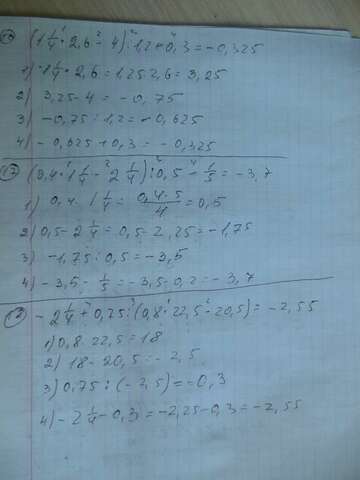 16) (1 1/4 · 2,6 - 4) : 1,2 + 0,3 = -0,325
1) 1 1/4 · 2,6 = 1,25 · 2,6 = 3,25
2) 3,25 - 4 = -0,75
3) -0,75 : 1,2 = -0,625
4) -0,625 + 0,3 = -0,325
17) (0,4 · 1 1/4 - 2 1/4) : 0,5 - 1/5 = -3,7
1) 0,4 · 1 1/4 = 0,4·5/4 = 0,5
2) 0,5 - 2 1/4 = 0,5 - 2,25 = -1,75
3) -1,75 : 0,5 = -3,5
4) -3,5 - 1/5 = -3,5 - 0,2 = -3,7
18) -2 1/4 + 0,75 : (0,8 · 22,5 - 20,5) = -2,55
1) 0,8 · 22,5 = 18
2) 18 - 20,5 = -2,5
3) 0,75 : (-2,5) = -0,3
4) -2 1/4 - 0,3 = -2,25 - 0,3 = -2,55